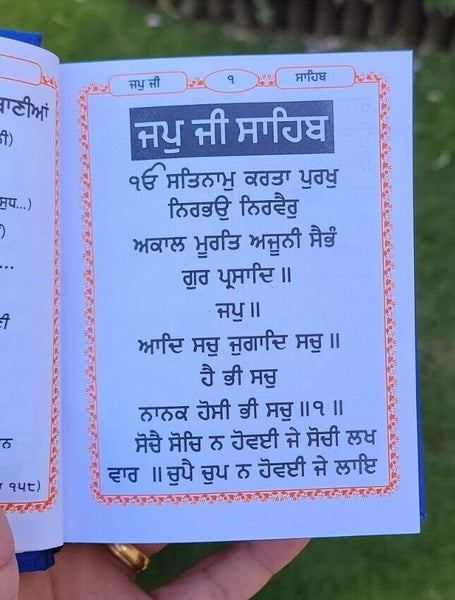 ਬਾਣੀਆਂ
ਜਪੁ ਜੀ
੧
ਸਾਹਿਬ
ਜਪੁ ਜੀ ਸਾਹਿਬ
ੴ ਸਤਿਨਾਮੁ ਕਰਤਾ ਪੁਰਖੁ
ਨਿਰਭਉ ਨਿਰਵੈਰੁ
ਅਕਾਲ ਮੂਰਤਿ ਅਜੂਨੀ ਸੈਭੰ
ਗੁਰ ਪ੍ਰਸਾਦਿ ॥
ਜਪੁ ॥
ਆਦਿ ਸਚੁ ਜੁਗਾਦਿ ਸਚੁ ॥
ਹੈ ਭੀ ਸਚੁ
ਨਾਨਕ ਹੋਸੀ ਭੀ ਸਚੁ ॥੧॥
ਸੋਚੈ ਸੋਚਿ ਨ ਹੋਵਈ ਜੇ ਸੋਚੀ ਲਖ
ਵਾਰ ॥ ਚੁਪੈ ਚੁਪ ਨ ਹੋਵਈ ਜੇ ਲਾਇ